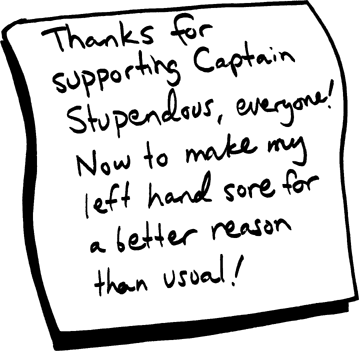 Thanks for
supporting Captain
Stupendous, everyone!
Now to make my
left hand sore for
a better reason
than usual!